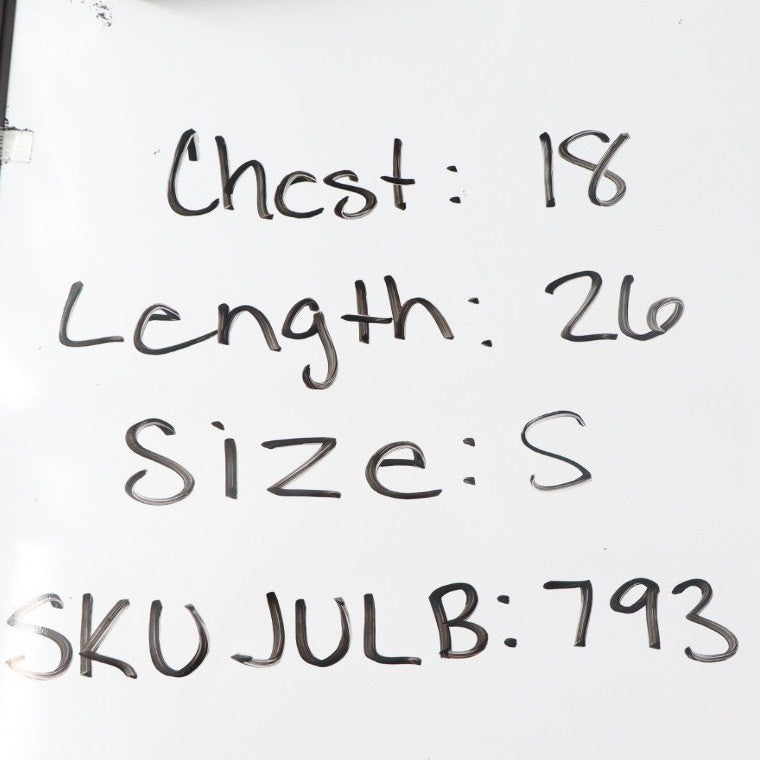 Chest: 18
Length: 26
Size: S
SKU JULB: 793